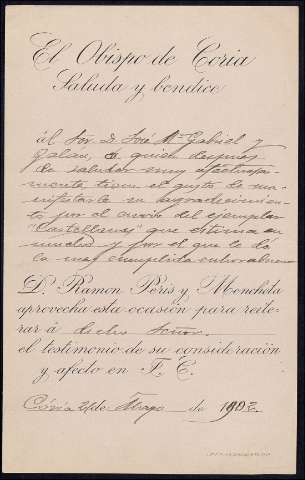 El Obispo de Coria
Saluda y bendice
al Sor. D. José Mª Gabriel y
Galán, á quien despues
de saludar muy afectuosa-
mente, tiene el gusto de ma-
nifestarle su agradecimien-
to por el envío del ejemplar
"Castellanas" que estima en
mucho y por el que le dá
la mas cumplida enhorabuena
D. Ramon Peris y Mencheta
aprovecha esta ocasión para reite-
rar á dicho Señor
el testimonio de su consideración
y afecto en J. C.
Cória 21 de Mayo de 1902.